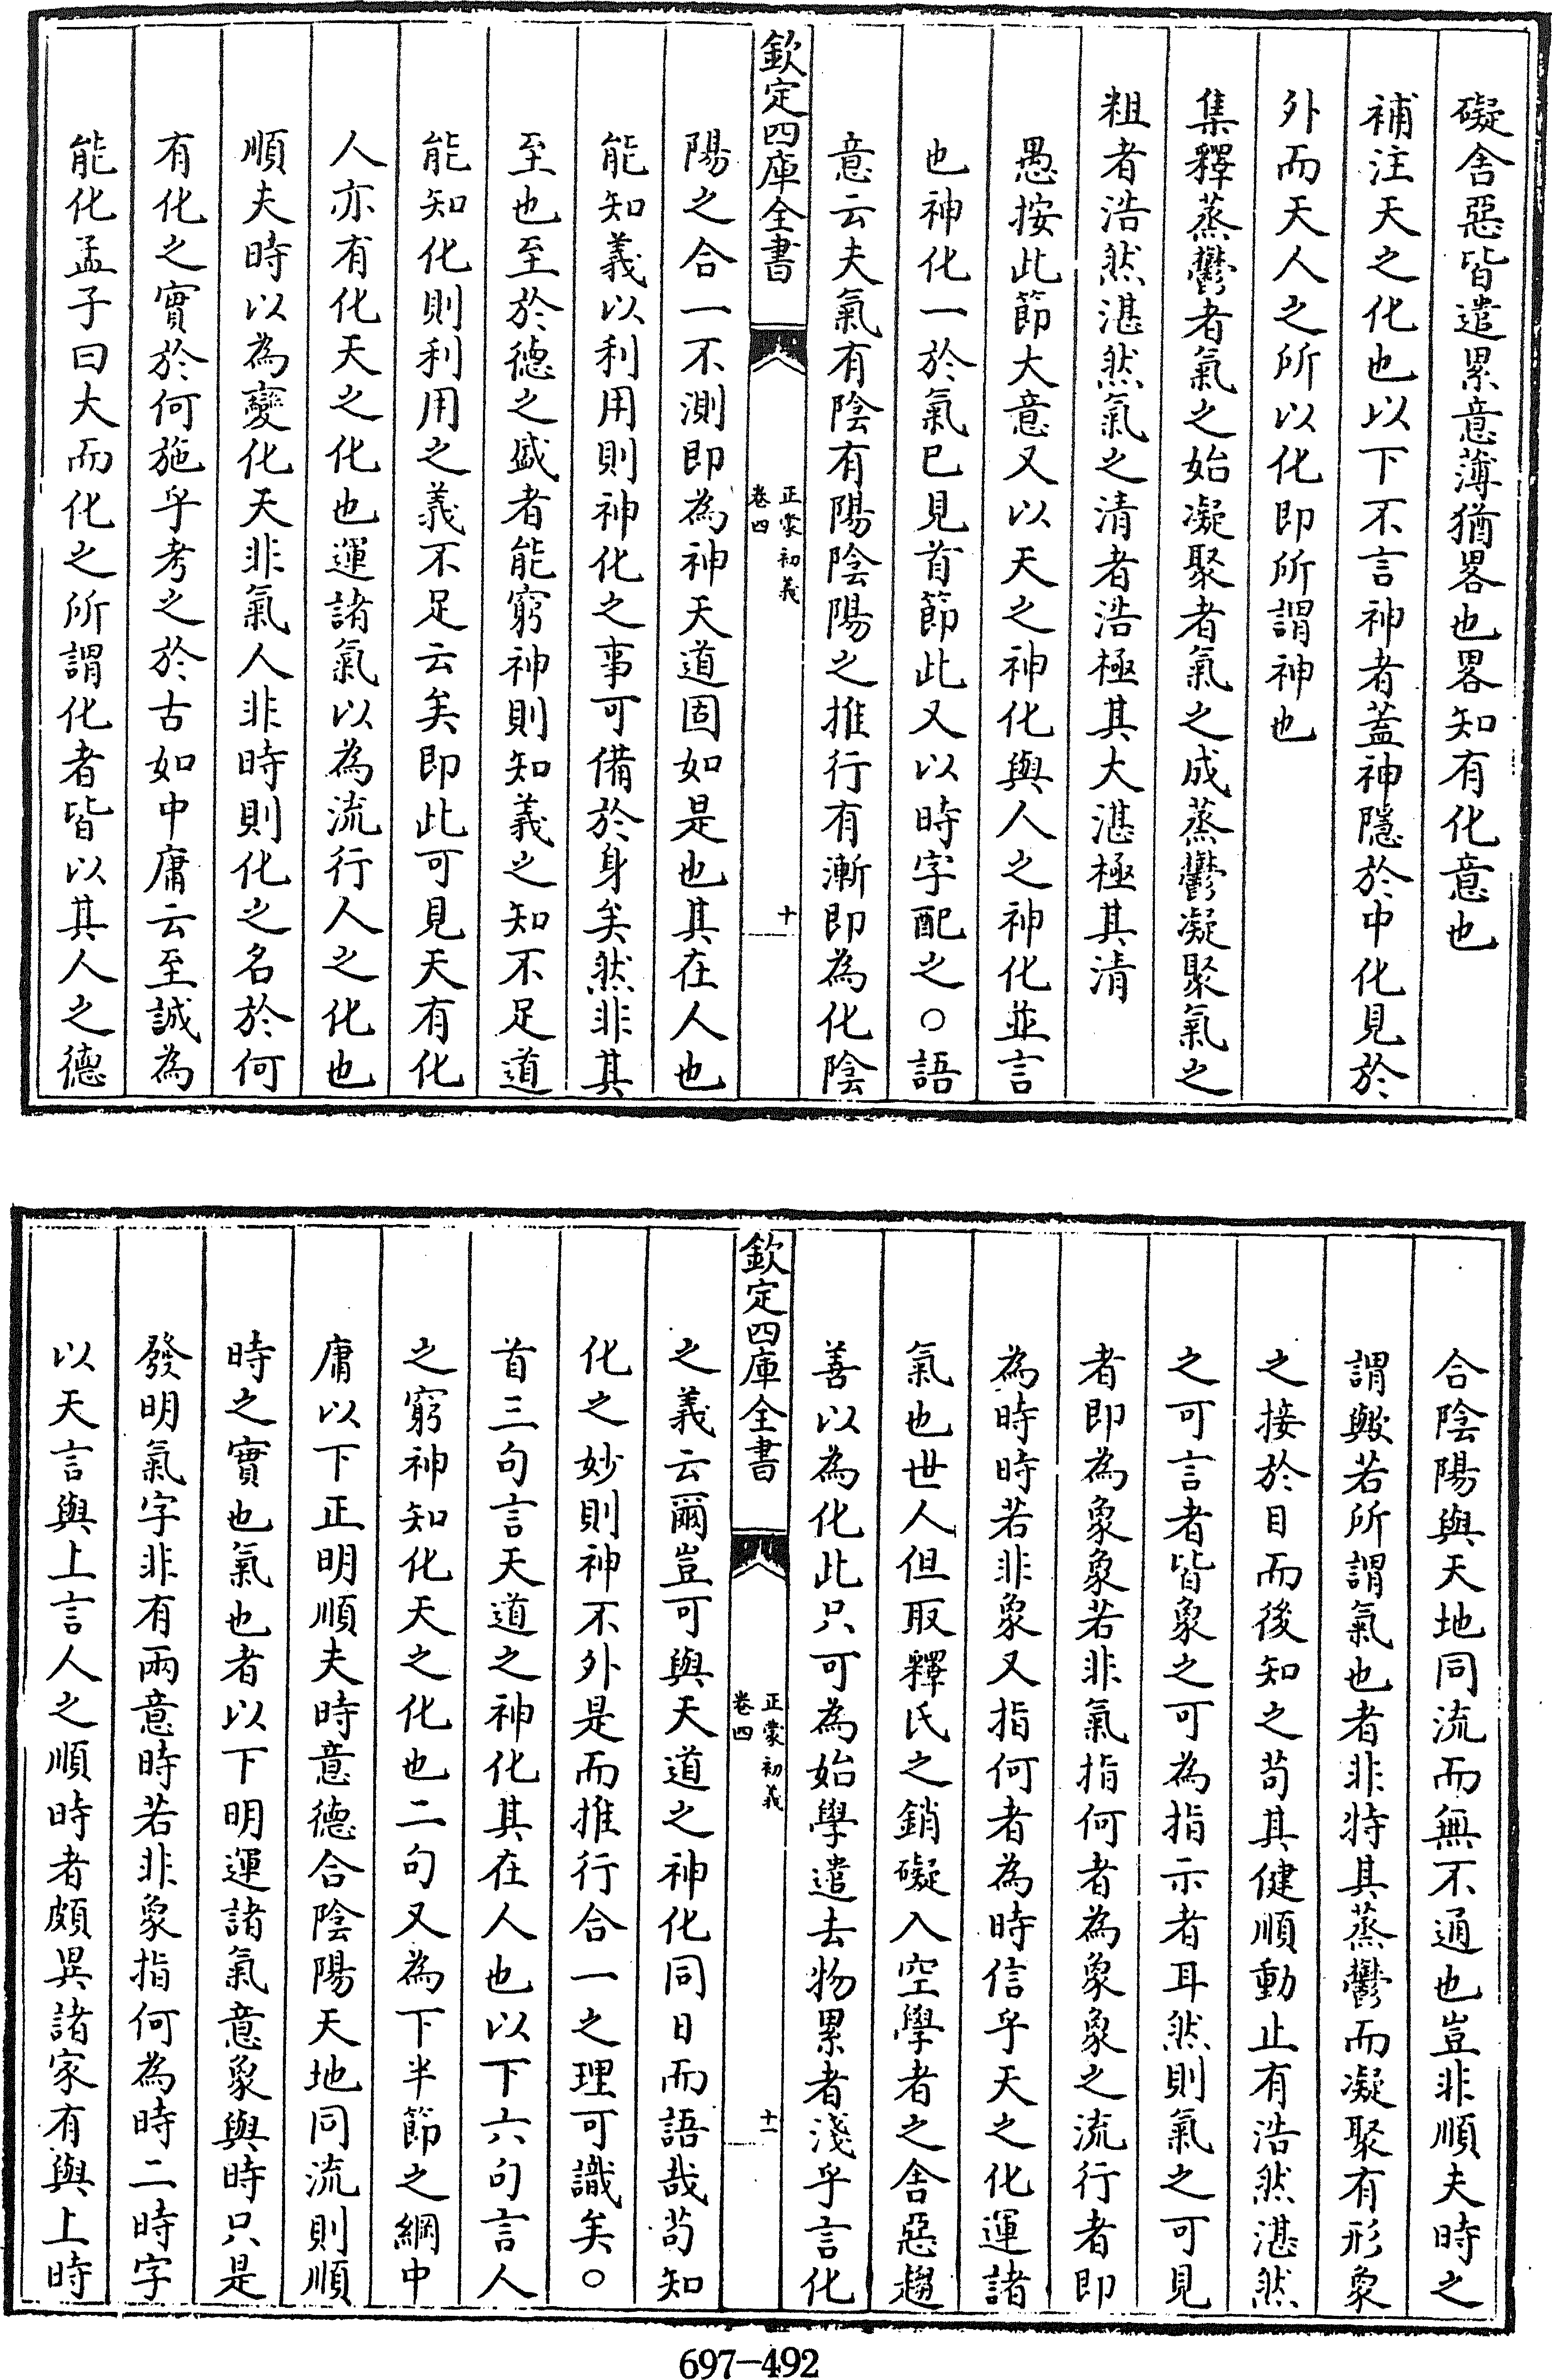 礙舍惡皆遣累意薄猶畧也畧知有化意也
補注天之化也以下不言神者蓋神隱於中化見於
外而天人之所以化即所謂神也
集釋蒸鬱者氣之始凝聚者氣之成蒸鬱凝聚氣之
粗者浩然湛然氣之清者浩極其大湛極其清
愚按此節大意又以天之神化與人之神化並言
也神化一於氣已見首節此又以時字配之○語
意云夫氣有陰有陽陰陽之推行有漸即為化陰
欽定四庫全書
正蒙初義
卷四
十
陽之合一不測即為神天道固如是也其在人也
能知義以利用則神化之事可備於身矣然非其
至也至於德之盛者能窮神則知義之知不足道
能知化則利用之義不足云矣即此可見天有化
人亦有化天之化也運諸氣以為流行人之化也
順夫時以為變化天非氣人非時則化之名於何
有化之實於何施乎考之於古如中庸云至誠為
能化孟子曰大而化之所謂化者皆以其人之德
合陰陽與天地同流而無不通也豈非順夫時之
謂與若所謂氣也者非特其蒸鬱而凝聚有形象
之接於目而後知之苟其健順動止有浩然湛然
之可言者皆象之可為指示者耳然則氣之可見
者即為象象若非氣指何者為象象之流行者即
為時時若非象又指何者為時信乎天之化運諸
氣也世人但取釋氏之銷礙入空學者之舍惡趨
善以為化此只可為始學遣去物累者淺乎言化
欽定四庫全書
正蒙初義
卷四
十一
之義云爾豈可與天道之神化同日而語哉苟知
化之妙則神不外是而推行合一之理可識矣○
首三句言天道之神化其在人也以下六句言人
之窮神知化天之化也二句又為下半節之綱中
庸以下正明順夫時意德合陰陽天地同流則順
時之實也氣也者以下明運諸氣意象與時只是
發明氣字非有兩意時若非象指何為時二時字
以天言與上言人之順時者頗異諸家有與上時
697-492